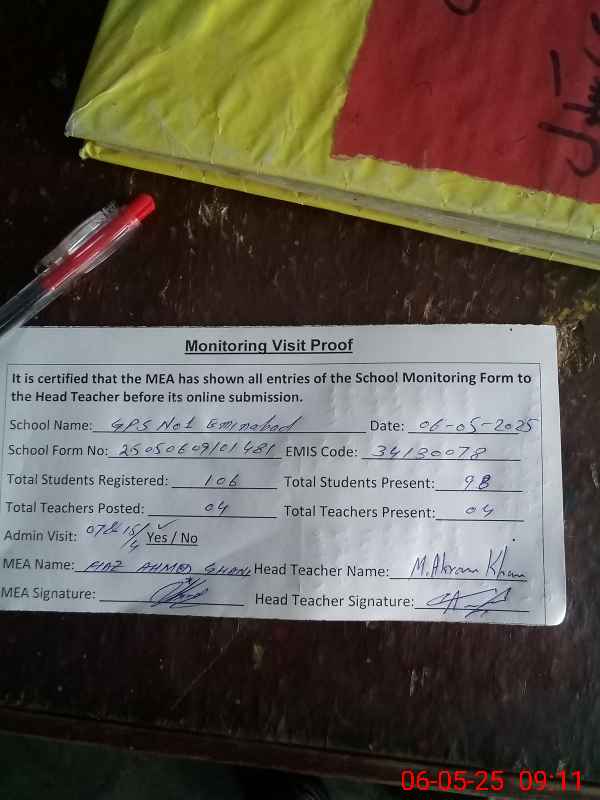 Monitoring Visit Proof
It is certified that the MEA has shown all entries of the School Monitoring Form to
the Head Teacher before its online submission.
School Name: GPS No1 Eminabad Date: 06-05-2025
School Form No: 25050609101481 EMIS Code: 34130078
Total Students Registered: 106 Total Students Present: 98
Total Teachers Posted: 04 Total Teachers Present: 04
Admin Visit: Yes / No
MEA Name: AHMED Head Teacher Name: M. Akram Khan
MEA Signature: Head Teacher Signature:
06-05-25 09:11